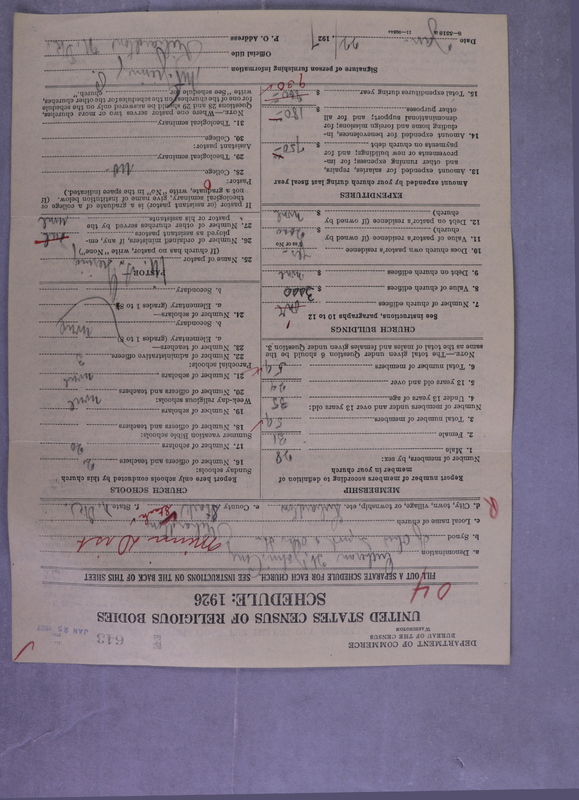 DEPARTMENT OF COMMERCE
BUREAU OF THE CENSUS
WASHINGTON
643
JAN 25 1927
UNITED STATES CENSUS OF RELIGIOUS BODIES
SCHEDULE: 1926
04
FILL A SEPARATE SCHEDULE FOR EACH CHURCH. SEE INSTRUCTIONS ON THE BACK OF THIS SHEET
a. Denomination Lutheran
b. Synod of Ohio
c. Local name of church
d. City, town, village, or township, etc. Richardton e. County Stark f. State N. D.
MEMBERSHIP
Report number of members according to definition of
member in your church
Number of members, by sex:
1. Male 28
2. Female 31
3. Total number of members 59
Number of members under and over 13 years old:
4. Under 13 years of age 35
5. 13 years old and over 24
6. Total number of members 59
NOTE.—The total given under Question 6 should be the
same as the total of males and females given under Question 3.
CHURCH BUILDINGS
See instructions, paragraphs 10 to 12
7. Number of church edifices one
8. Value of church edifices $ 3000
9. Debt on church edifices $ none
10. Does church own pastor's residence yes
(Yes or No)
11. Value of pastor's residence (if owned by
church) $
12. Debt on pastor's residence (if owned by
church) $ none
EXPENDITURES
Amount expended by your church during last fiscal year
13. Amount expended for salaries, repairs,
and other running expenses; for im-
provements or new buildings; and for
payments on church debt $ 750
14. Amount expended for benevolences, in-
cluding home and foreign missions; for
denominational support; and for all
other purposes $ 180
15. Total expenditures during year $ 930
CHURCH SCHOOLS
Report here only schools conducted by this church
Sunday schools:
16. Number of officers and teachers 2
17. Number of scholars 20
Summer vacation Bible schools:
18. Number of officers and teachers
19. Number of scholars
Week-day religious schools:
20. Number of officers and teachers none
21. Number of scholars none
Parochial schools:
22. Number of administrative officers 2
23. Number of teachers—
a. Elementary (grades 1 to 8)
b. Secondary none
24. Number of scholars—
a. Elementary (grades 1 to 8)
b. Secondary
PASTOR
25. Name of pastor
(If church has no pastor, write "None")
26. Number of ordained ministers, if any, em-
ployed as assistant pastors
27. Number of other churches served by the
pastor or his assistants none
If pastor (or assistant pastor) is a graduate of a college or
theological seminary, give name of institution below. (If
not a graduate, write "No" in the space indicated.)
Pastor:
28. College no
29. Theological seminary
Assistant pastor:
30. College
31. Theological seminary
NOTE.—Where one pastor serves two or more churches,
Questions 28 and 29 should be answered only on the schedule
for one of the churches; on the schedules for the other churches,
write "See schedule for church."
Signature of person furnishing information
Official title
P. O. Address Richardton N. Dak.
Date Jan 22, 1927